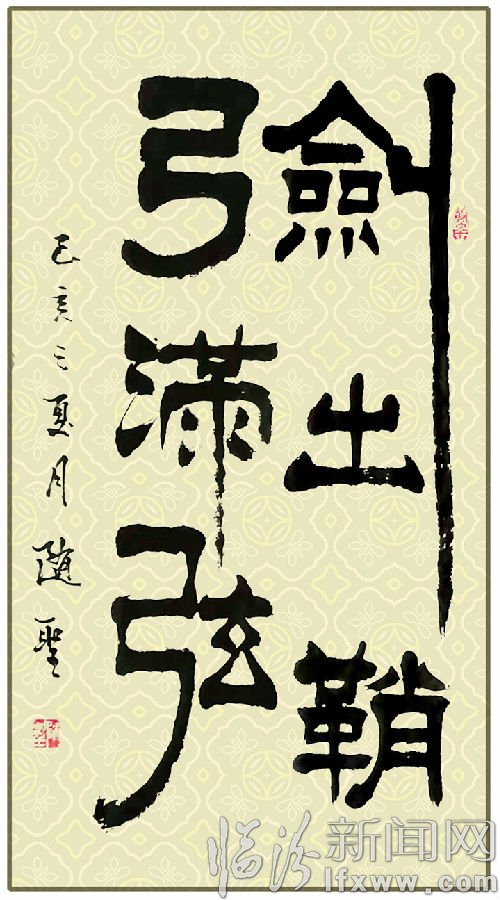 劍出鞘
弓滿弦
己亥之夏月随聖
临汾新闻网
lfxww.com